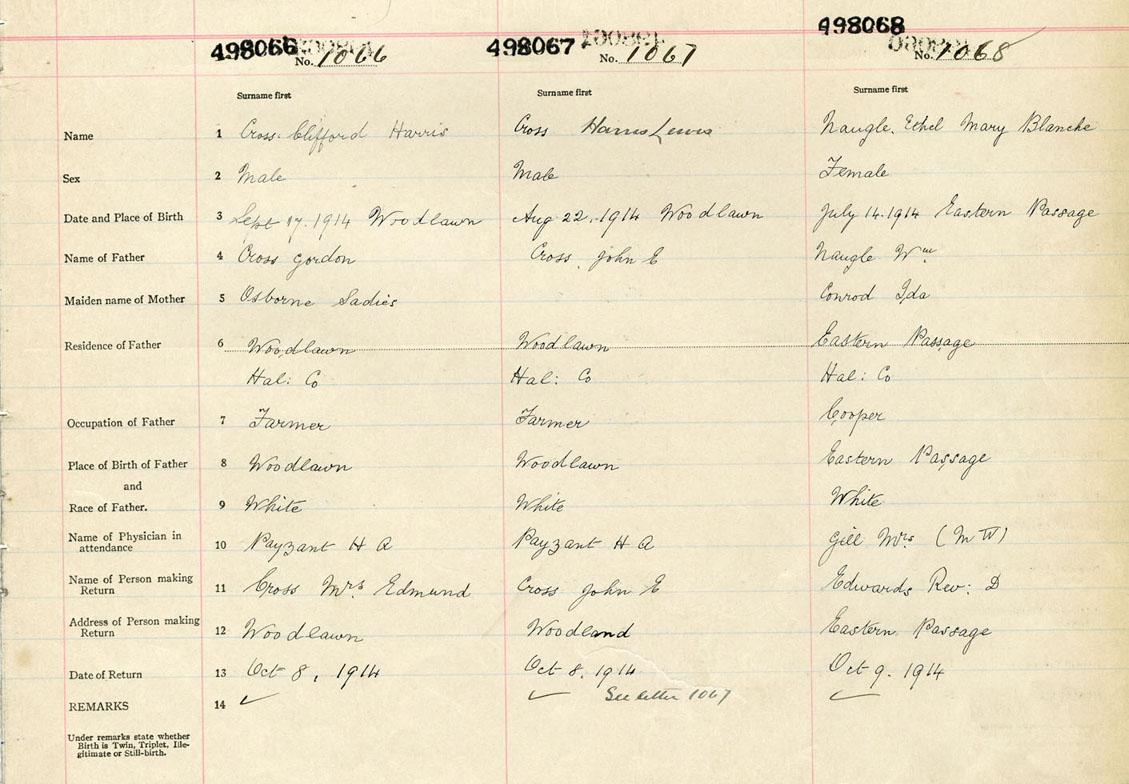 498066 498067 498068
No. 1066 No. 1067 No. 1068
Surname first Surname first Surname first
Name 1 Cross. Clifford Harris Cross Harris Lewis Naugle, Ethel Mary Blanche
Sex 2 Male Male Female
Date and Place of Birth 3 Sept 17. 1914 Woodlawn Aug 22. 1914 Woodlawn July 14. 1914 Eastern Passage
Name of Father 4 Cross Gordon Cross, John E Naugle Wm
Maiden name of Mother 5 Osborne Sadies Conrod Ida
Residence of Father 6 Woodlawn Woodlawn Eastern Passage
Hal: Co Hal: Co Hal: Co
Occupation of Father 7 Farmer Farmer Cooper
Place of Birth of Father 8 Woodlawn Woodlawn Eastern Passage
and
Race of Father. 9 White White White
Name of Physician in
attendance 10 Payzant H A Payzant H A Gill Mrs (M W)
Name of Person making
Return 11 Cross Mrs Edmund Cross John E Edwards Rev: D
Address of Person making
Return 12 Woodlawn Woodland Eastern Passage
Date of Return 13 Oct 8, 1914 Oct 8. 1914 Oct 9. 1914
REMARKS 14 ✓ ✓ See letter 1067 ✓
Under remarks state whether
Birth is Twin, Triplet, Ille-
gitimate or Still-birth.